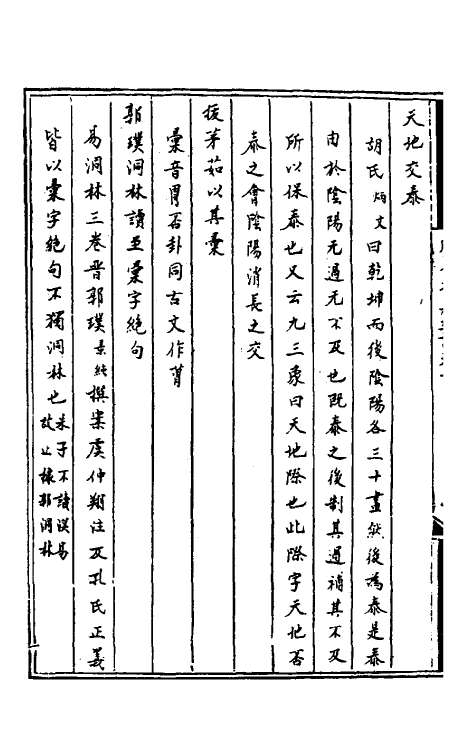 天地交泰
胡氏炳文曰乾坤而後陰陽各三十畫然後為泰是泰
由於陰陽无過无不及也既泰之後制其過補其不及
所以保泰也又云九三象曰天地際也此際字天地否
泰之會陰陽消長之交
拔茅茹以其彙
彙音胃否卦同古文作𦳢
郭璞洞林讀至彙字絕句
易洞林三卷晉郭璞景純撰案虞仲翔注及孔氏正義
皆以彙字絕句不獨洞林也朱子不讀漢易
故止據郭洞林